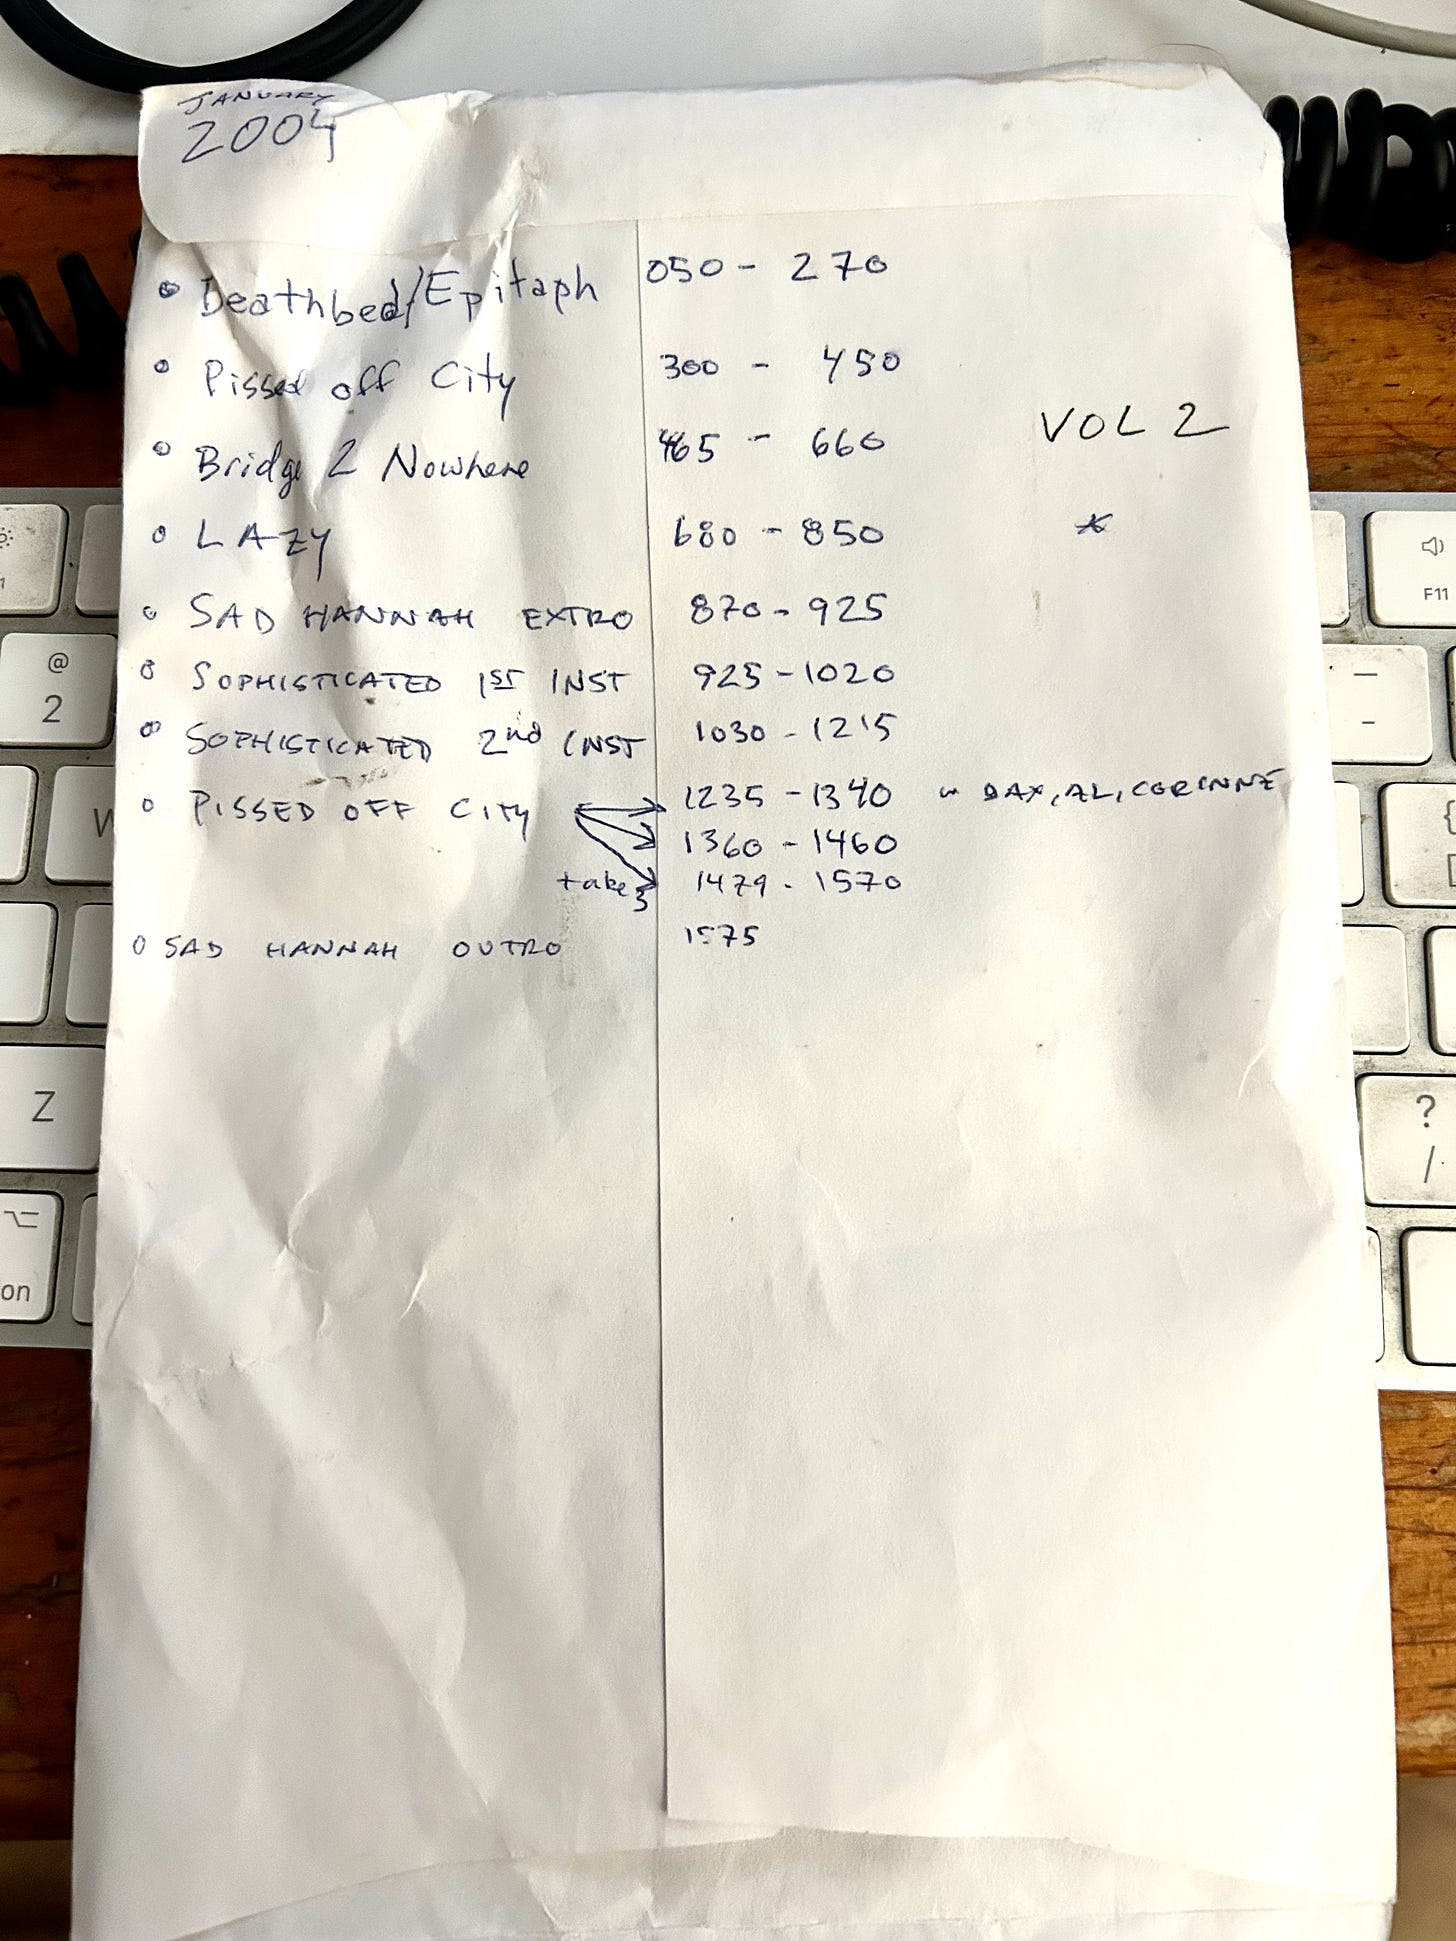 JANUARY
2004
Deathbed/Epitaph 050 - 270
Pissed off City 300 - 450
Bridge 2 Nowhere 465 - 660
VOL 2
LAZY 680 - 850 *
SAD HANNAH EXTRO 870 - 925
SOPHISTICATED 1ST INST 925 - 1020
SOPHISTICATED 2nd INST 1030 - 1215
PISSED OFF CITY 1235 - 1340 w DAX, AL, CORINNE
1360 - 1460
take 3 1479 - 1570
SAD HANNAH OUTRO 1575
@
2
W
Z
on
F11
—
-
{
[
?
/